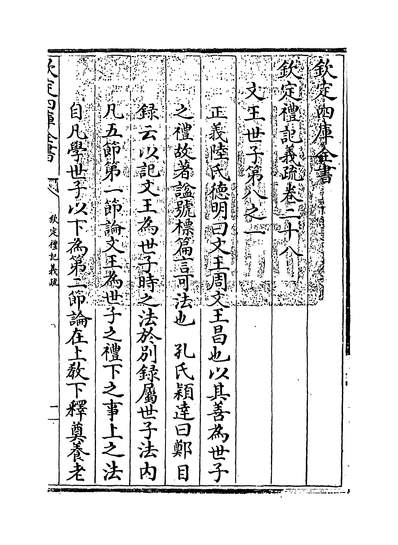 欽定四庫全書
欽定禮記義疏卷二十八
文王世子第八之一
正義陸氏德明曰文王周文王昌也以其善為世子
之禮故著諡號標篇言可法也 孔氏穎達曰鄭目
録云以記文王為世子時之法於別録屬世子法内
凡五節第一節論文王為世子之禮下之事上之法
自凡學世子以下為第二節論在上教下釋奠養老
欽定四庫全書
欽定禮記義疏
一